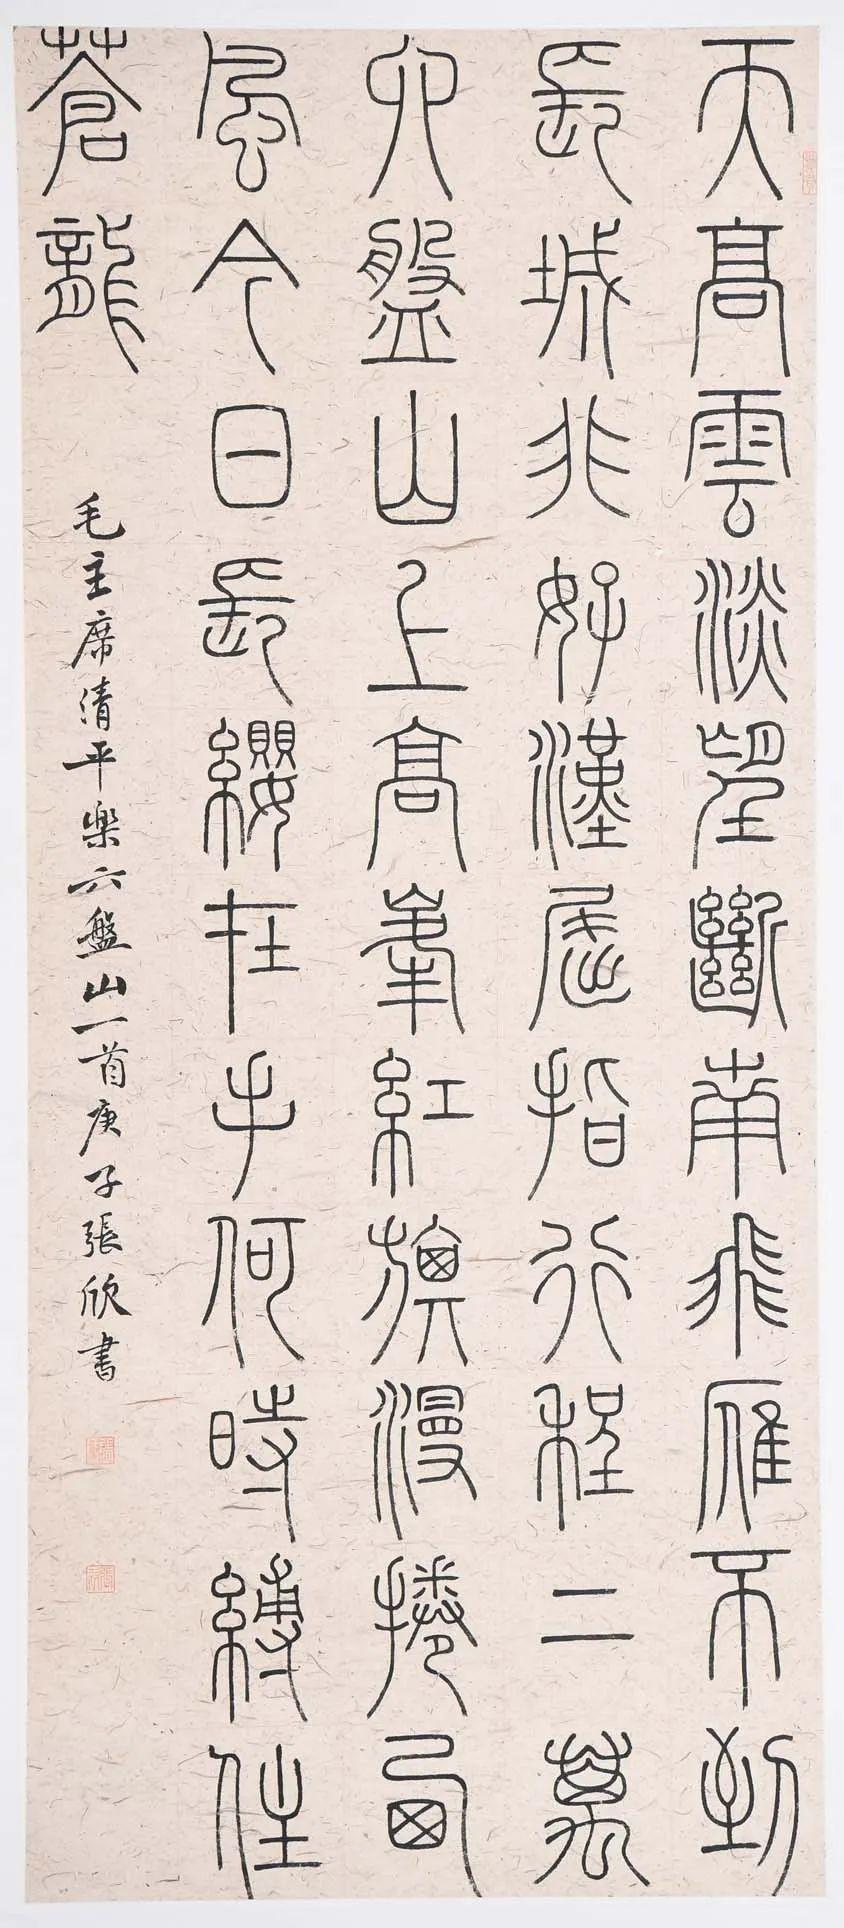 天高雲淡望斷南飛雁不到
長城非好漢屈指行程二萬
六盤山上高峯紅旗漫捲西
風今日長纓在手何時縛住
蒼龍
毛主席清平樂六盤山一首庚子張欣書